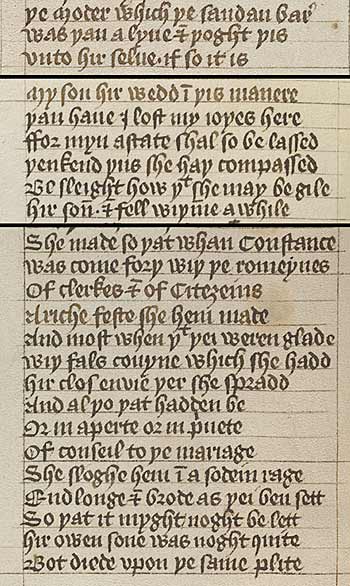 ye moder which ye saudan bar
was yan alyue & yoght yis
vnto hir selue. if so it is
My son hir wedd ī yis manere
yan haue I lost my ioyes here
ffor myn astate shal so be lassed
yenkend yus she hay compassed
Be sleight how yt she may begile
hir son. & fell wiyīne a while
She made so yat whan Constance
was come fory wiy ye romeynes
Of clerkes & of Citezeins
A riche feste she hem made
And most when yt yei weren glade
wiy fals couyne which she hadd
hir clos enuie yer she spradd
And al yo yat hadden be
Or in aperte or in puete
Of conseil to ye mariage
She sloghe hem ī a sodein rage
Endlonge & brode as yei ben sett
So yat it myght noght be lett
hir owen sone was noght quite
Bot diede vpon ye same plite